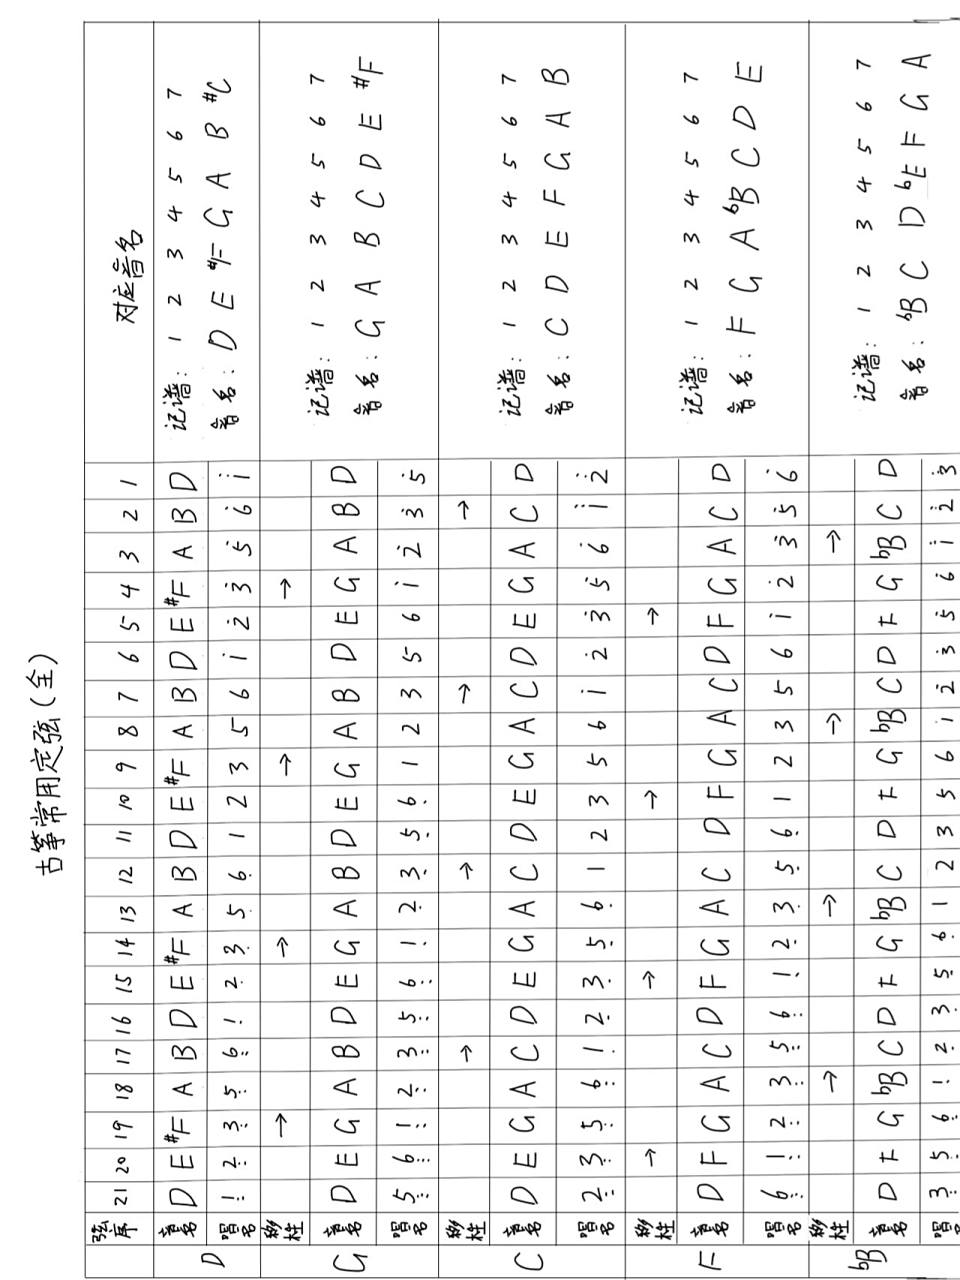 古筝常用定弦(全)
弦序 21 20 19 18 17 16 15 14 13 12 11 10 9 8 7 6 5 4 3 2 1 对应音名
D
音名 D E #F A B D E #F A B D E #F A B D E #F A B D 记谱: 1 2 3 4 5 6 7
唱名 1 2 3 5 6 1 2 3 5 6 1 2 3 5 6 1 2 3 5 6 1 音名: D E #F G A B #C
G
移柱 ↓ ↓ ↓ ↓
音名 D E G A B D E G A B D E G A B D E G A B D 记谱: 1 2 3 4 5 6 7
唱名 5 6 1 2 3 5 6 1 2 3 5 6 1 2 3 5 6 1 2 3 5 音名: G A B C D E #F
C
移柱 ↓ ↓ ↓ ↓
音名 D E G A C D E G A C D E G A C D E G A C D 记谱: 1 2 3 4 5 6 7
唱名 2 3 5 6 1 2 3 5 6 1 2 3 5 6 1 2 3 5 6 1 2 音名: C D E F G A B
F
移柱 ↓ ↓ ↓ ↓
音名 D F G A C D F G A C D F G A C D F G A C D 记谱: 1 2 3 4 5 6 7
唱名 6 1 2 3 5 6 1 2 3 5 6 1 2 3 5 6 1 2 3 5 6 音名: F G A bB C D E
bB
移柱 ↓ ↓ ↓ ↓
音名 D F G bB C D F G bB C D F G bB C D F G bB C D 记谱: 1 2 3 4 5 6 7
唱名 3 5 6 1 2 3 5 6 1 2 3 5 6 1 2 3 5 6 1 2 3 音名: bB C D bE F G A